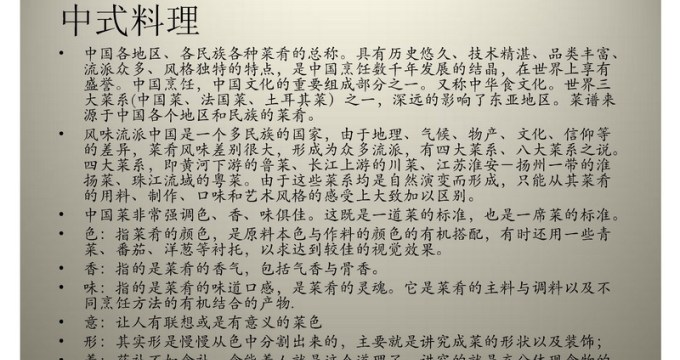 中式料理
• 中国各地区、各民族各种菜肴的总称。具有历史悠久、技术精湛、品类丰富、
流派众多、风格独特的特点，是中国烹饪数千年发展的结晶，在世界上享有
盛誉。中国烹饪，中国文化的重要组成部分之一。又称中华食文化。世界三
大菜系(中国菜、法国菜、土耳其菜）之一，深远的影响了东亚地区。菜谱来
源于中国各个地区和民族的菜肴。
• 风味流派中国是一个多民族的国家，由于地理、气候、物产、文化、信仰等
的差异，菜肴风味差别很大，形成为众多流派，有四大菜系、八大菜系之说。
四大菜系，即黄河下游的鲁菜、长江上游的川菜、江苏淮安－扬州一带的淮
扬菜、珠江流域的粤菜。由于这些菜系均是自然演变而形成，只能从其菜肴
的用料、制作、口味和艺术风格的感受上大致加以区别。
• 中国菜非常强调色、香、味俱佳。这既是一道菜的标准，也是一席菜的标准。
• 色：指菜肴的颜色，是原料本色与作料的颜色的有机搭配，有时还用一些青
菜、番茄、洋葱等衬托，以求达到较佳的视觉效果。
• 香：指的是菜肴的香气，包括气香与骨香。
• 味：指的是菜肴的味道口感，是菜肴的灵魂。它是菜肴的主料与调料以及不
同烹饪方法的有机结合的产物.
• 意：让人有联想或是有意义的菜色
• 形：其实形是慢慢从色中分割出来的，主要就是讲究成菜的形状以及装饰；